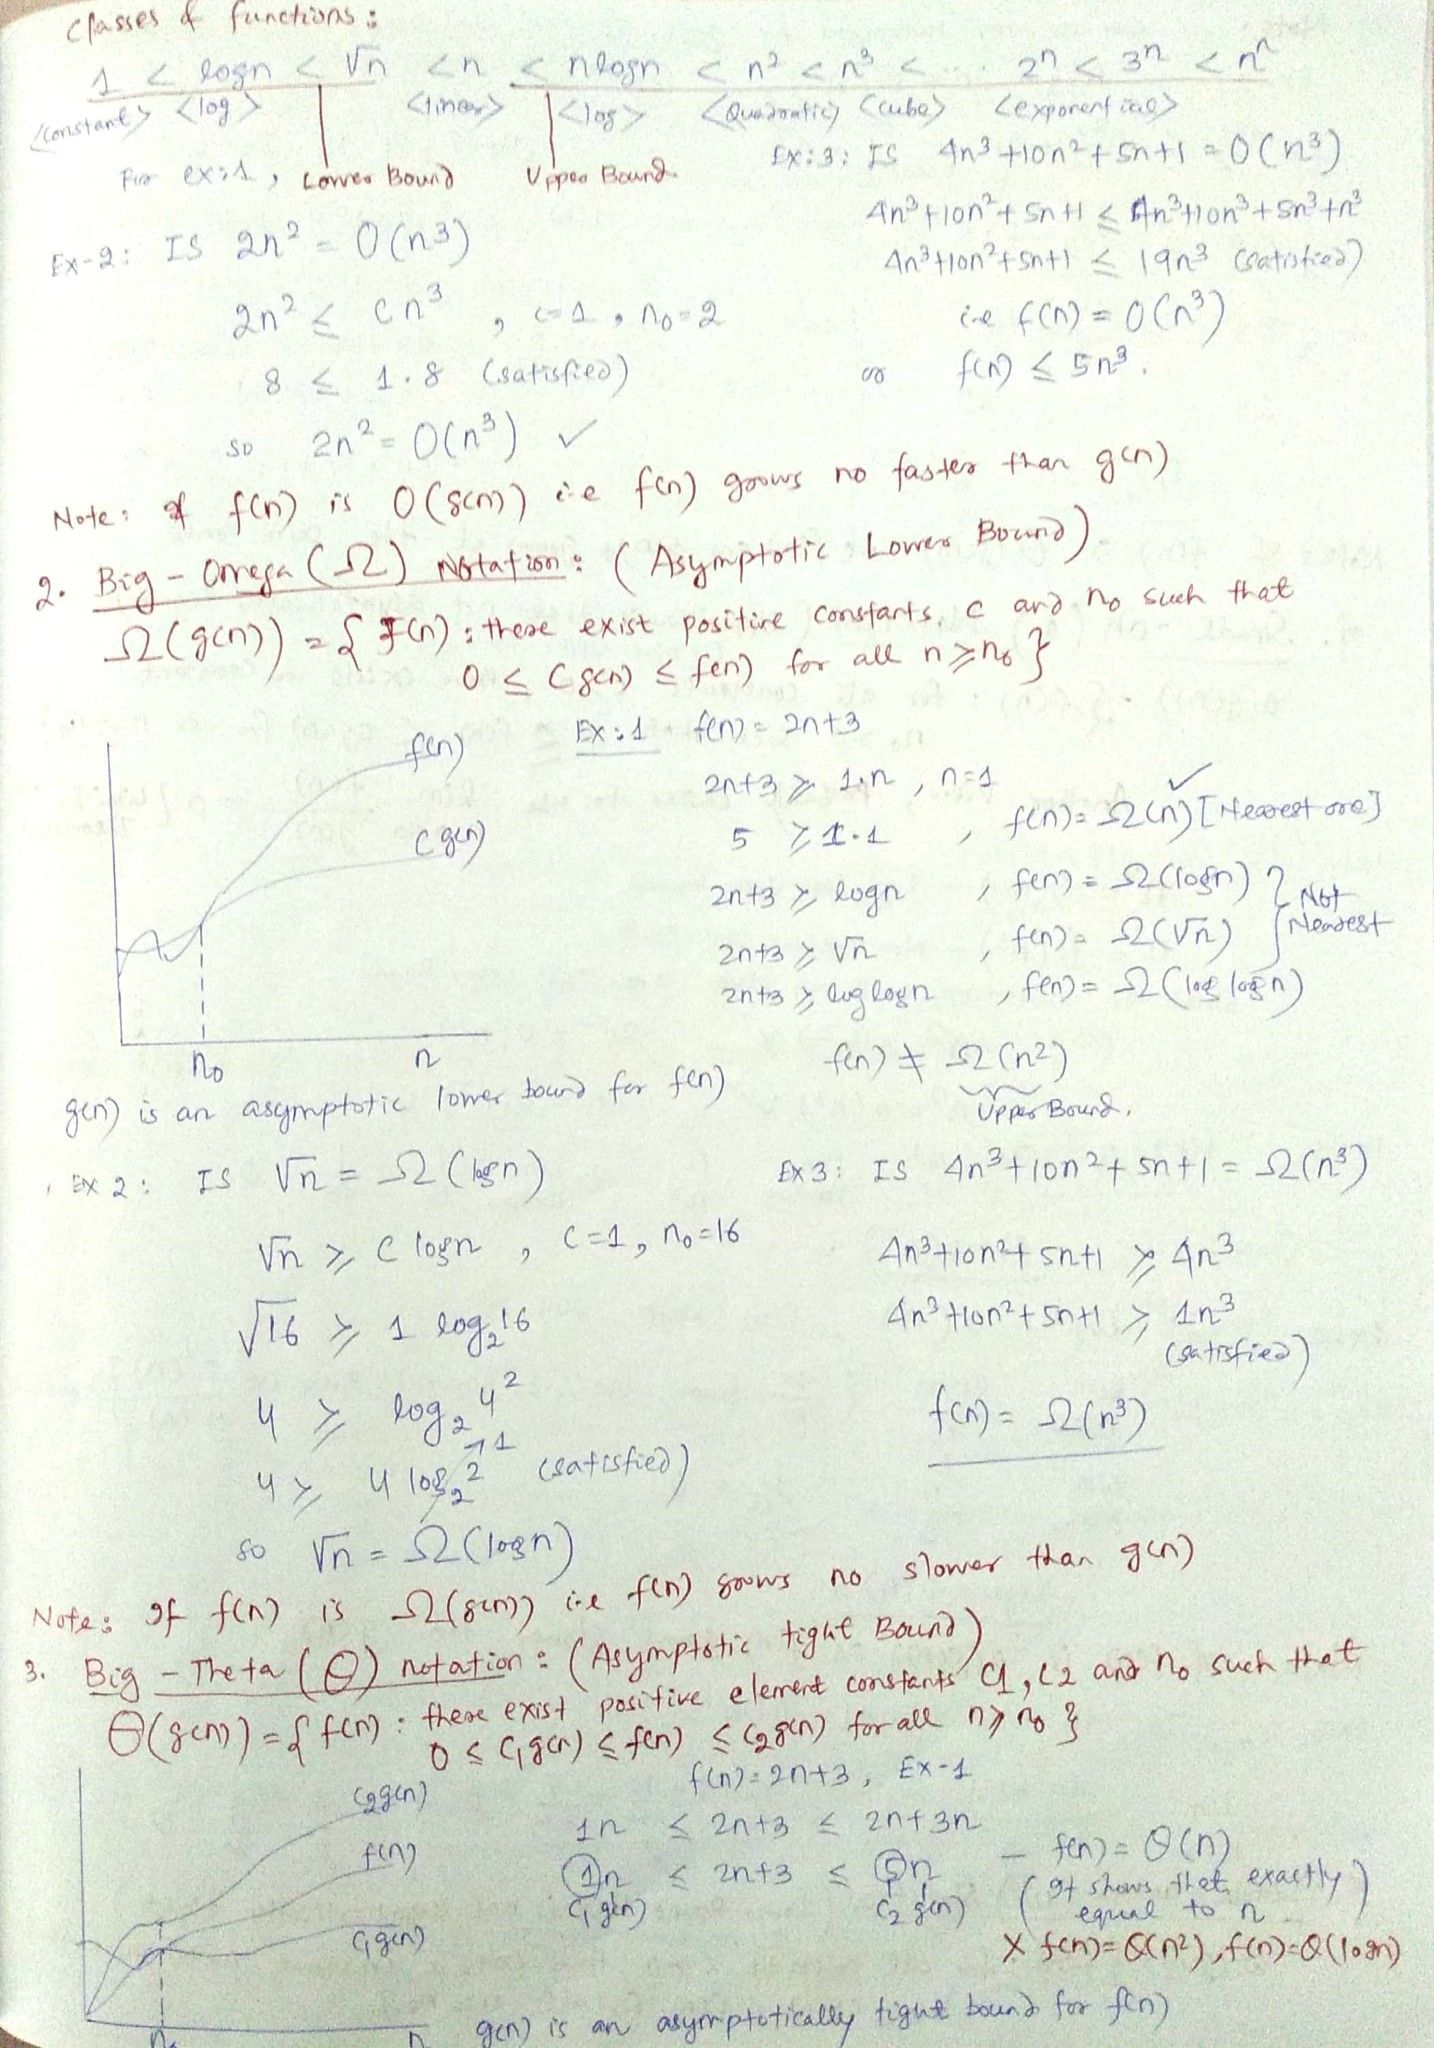 Classes of functions :
1 < logn < √n < n < nlogn < n² < n³ < .... 2ⁿ < 3ⁿ < nⁿ
<constant> <log> <linear> <log> <Quadratic> <cube> <exponential>
For ex:1, Lower Bound Upper Bound
Ex-2: IS 2n² = O(n³)
2n² ≤ cn³ , c=1, n₀=2
8 ≤ 1.8 (satisfied)
so 2n² = O(n³) ✓
Ex:3: IS 4n³+10n²+5n+1 = O(n³)
4n³+10n²+5n+1 ≤ 4n³+10n³+5n³+n³
4n³+10n²+5n+1 ≤ 19n³ (satisfied)
i.e f(n) = O(n³)
or f(n) ≤ 5n³.
Note: If f(n) is O(g(n)) i.e f(n) grows no faster than g(n)
2. Big-Omega (Ω) Notation: (Asymptotic Lower Bound)
Ω(g(n)) = { f(n) : there exist positive constants, c and n₀ such that
0 ≤ Cg(n) ≤ f(n) for all n ≥ n₀ }
f(n)
c g(n)
n₀ n
g(n) is an asymptotic lower bound for f(n)
Ex:1 f(n) = 2n+3
2n+3 ≥ 1.n , n=1
5 ≥ 1.1 , f(n) = Ω(n) ✓ [Nearest one]
2n+3 ≥ logn , f(n) = Ω(logn) } Not
2n+3 ≥ √n , f(n) = Ω(√n) Nearest
2n+3 ≥ log logn , f(n) = Ω(log logn)
f(n) ≠ Ω(n²)
Upper Bound.
Ex 2: IS √n = Ω(logn)
√n ≥ c logn , c=1, n₀=16
√16 ≥ 1 log₂16
4 ≥ log₂4²
4 ≥ 4 log₂2 1 (satisfied)
so √n = Ω(logn)
Ex 3: IS 4n³+10n²+5n+1 = Ω(n³)
4n³+10n²+5n+1 ≥ 4n³
4n³+10n²+5n+1 ≥ 1n³
(satisfied)
f(n) = Ω(n³)
Note: If f(n) is Ω(g(n)) i.e f(n) grows no slower than g(n)
3. Big-Theta (Θ) notation: (Asymptotic tight Bound)
Θ(g(n)) = { f(n) : there exist positive element constants c1, c2 and n₀ such that
0 ≤ c₁g(n) ≤ f(n) ≤ c₂g(n) for all n ≥ n₀ }
c₂g(n)
f(n)
c₁g(n)
n₀ n
f(n) = 2n+3, Ex-1
1n ≤ 2n+3 ≤ 2n+3n
1n ≤ 2n+3 ≤ 5n – f(n) = Θ(n)
c₁g(n) c₂g(n) (It shows that exactly
equal to n)
X f(n)=Θ(n²), f(n)=Θ(logn)
g(n) is an asymptotically tight bound for f(n)